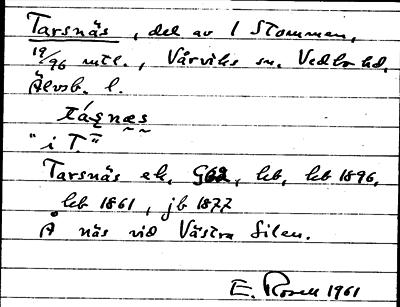 Tarsnäs, del av 1 Stommen,
19/96 mtl., Vårviks sn. Vedbo hd,
Älvsb. l.
"i T."
Tarsnäs ek, hb, hb 1896,
hb 1861, jb 1877
Å näs vid Västra Silen.
E. Rosell 1961